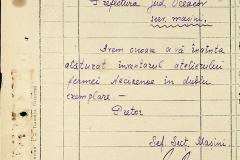 Prefectura jud. Oceacov
serv. masini.
Avem onoare a vă înainta
alăturat inventarul atelierului
fermei Necicenoe în dublu
exemplare —
Dictor
Sef. Sect. Masini.